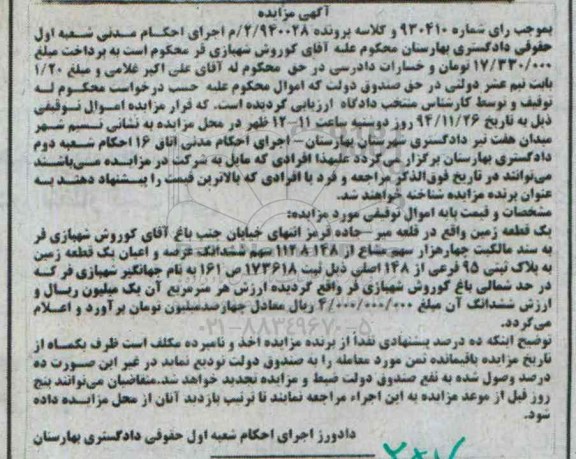 آگهی مزایده
بموجب رای شماره ۹۳۰۴۱۰ و کلاسه پرونده ۲/۹۴۰۰۲۸/م اجرای احکام مدنی شعبه اول
حقوقی دادگستری بهارستان محکوم علیه آقای کوروش شهبازی فر محکوم است به پرداخت مبلغ
۱۷/۳۳۰/۰۰۰ تومان و خسارات دادرسی در حق محکوم له آقای علی اکبر غلامی و مبلغ ۱/۲۰
بابت نیم عشر دولتی در حق صندوق دولت که اموال محکوم علیه حسب درخواست محکوم له
توقیف و توسط کارشناس منتخب دادگاه ارزیابی گردیده است. که قرار مزایده اموال توقیفی
ذیل به تاریخ ۹۴/۱۱/۲۶ روز دوشنبه ساعت ۱۱-۱۲ ظهر در محل مزایده به نشانی نسیم شهر
میدان هفت تیر دادگستری شهرستان بهارستان - اجرای احکام مدنی اتاق ۱۶ احکام شعبه دوم
دادگستری بهارستان برگزار می‌گردد علیهذا افرادی که مایل به شرکت در مزایده می‌باشند
می‌توانند در تاریخ فوق‌الذکر مراجعه و فرد یا افرادی که بالاترین قیمت را پیشنهاد دهند به
عنوان برنده مزایده شناخته خواهند شد.
مشخصات و قیمت پایه اموال توقیفی مورد مزایده:
یک قطعه زمین واقع در قلعه میر - جاده قرمز انتهای خیابان جنب باغ آقای کوروش شهبازی فر
به سند مالکیت چهارهزار سهم مشاع از ۱۱۲۸۱۴۸ سهم ششدانگ عرصه و اعیان یک قطعه زمین
به پلاک ثبتی ۹۵ فرعی از ۱۴۸ اصلی ذیل ثبت ۱۷۳۶۱۸ ص ۱۶۱ به نام جهانگیر شهبازی فر که
در حد شمالی باغ کوروش شهبازی فر واقع گردیده ارزش هر مترمربع آن یک میلیون ریال و
ارزش ششدانگ آن مبلغ ۴/۰۰۰/۰۰۰/۰۰۰ ریال معادل چهارصدمیلیون تومان برآورد و اعلام
می‌گردد.
توضیح اینکه ده درصد پیشنهادی نقدا از برنده مزایده اخذ و نامبرده مکلف است ظرف یکماه از
تاریخ مزایده باقیمانده ثمن مورد معامله را به صندوق دولت تودیع نماید در غیر این صورت ده
درصد وصول شده به نفع صندوق دولت ضبط و مزایده تجدید خواهد شد. متقاضیان می‌توانند پنج
روز قبل از موعد مزایده به این اجراء مراجعه نمایند تا ترتیب بازدید آنان از محل مزایده داده
شود.
دادورز اجرای احکام شعبه اول حقوقی دادگستری بهارستان
۰۲۱-۸۸۳۴۹۶۷۰-۵